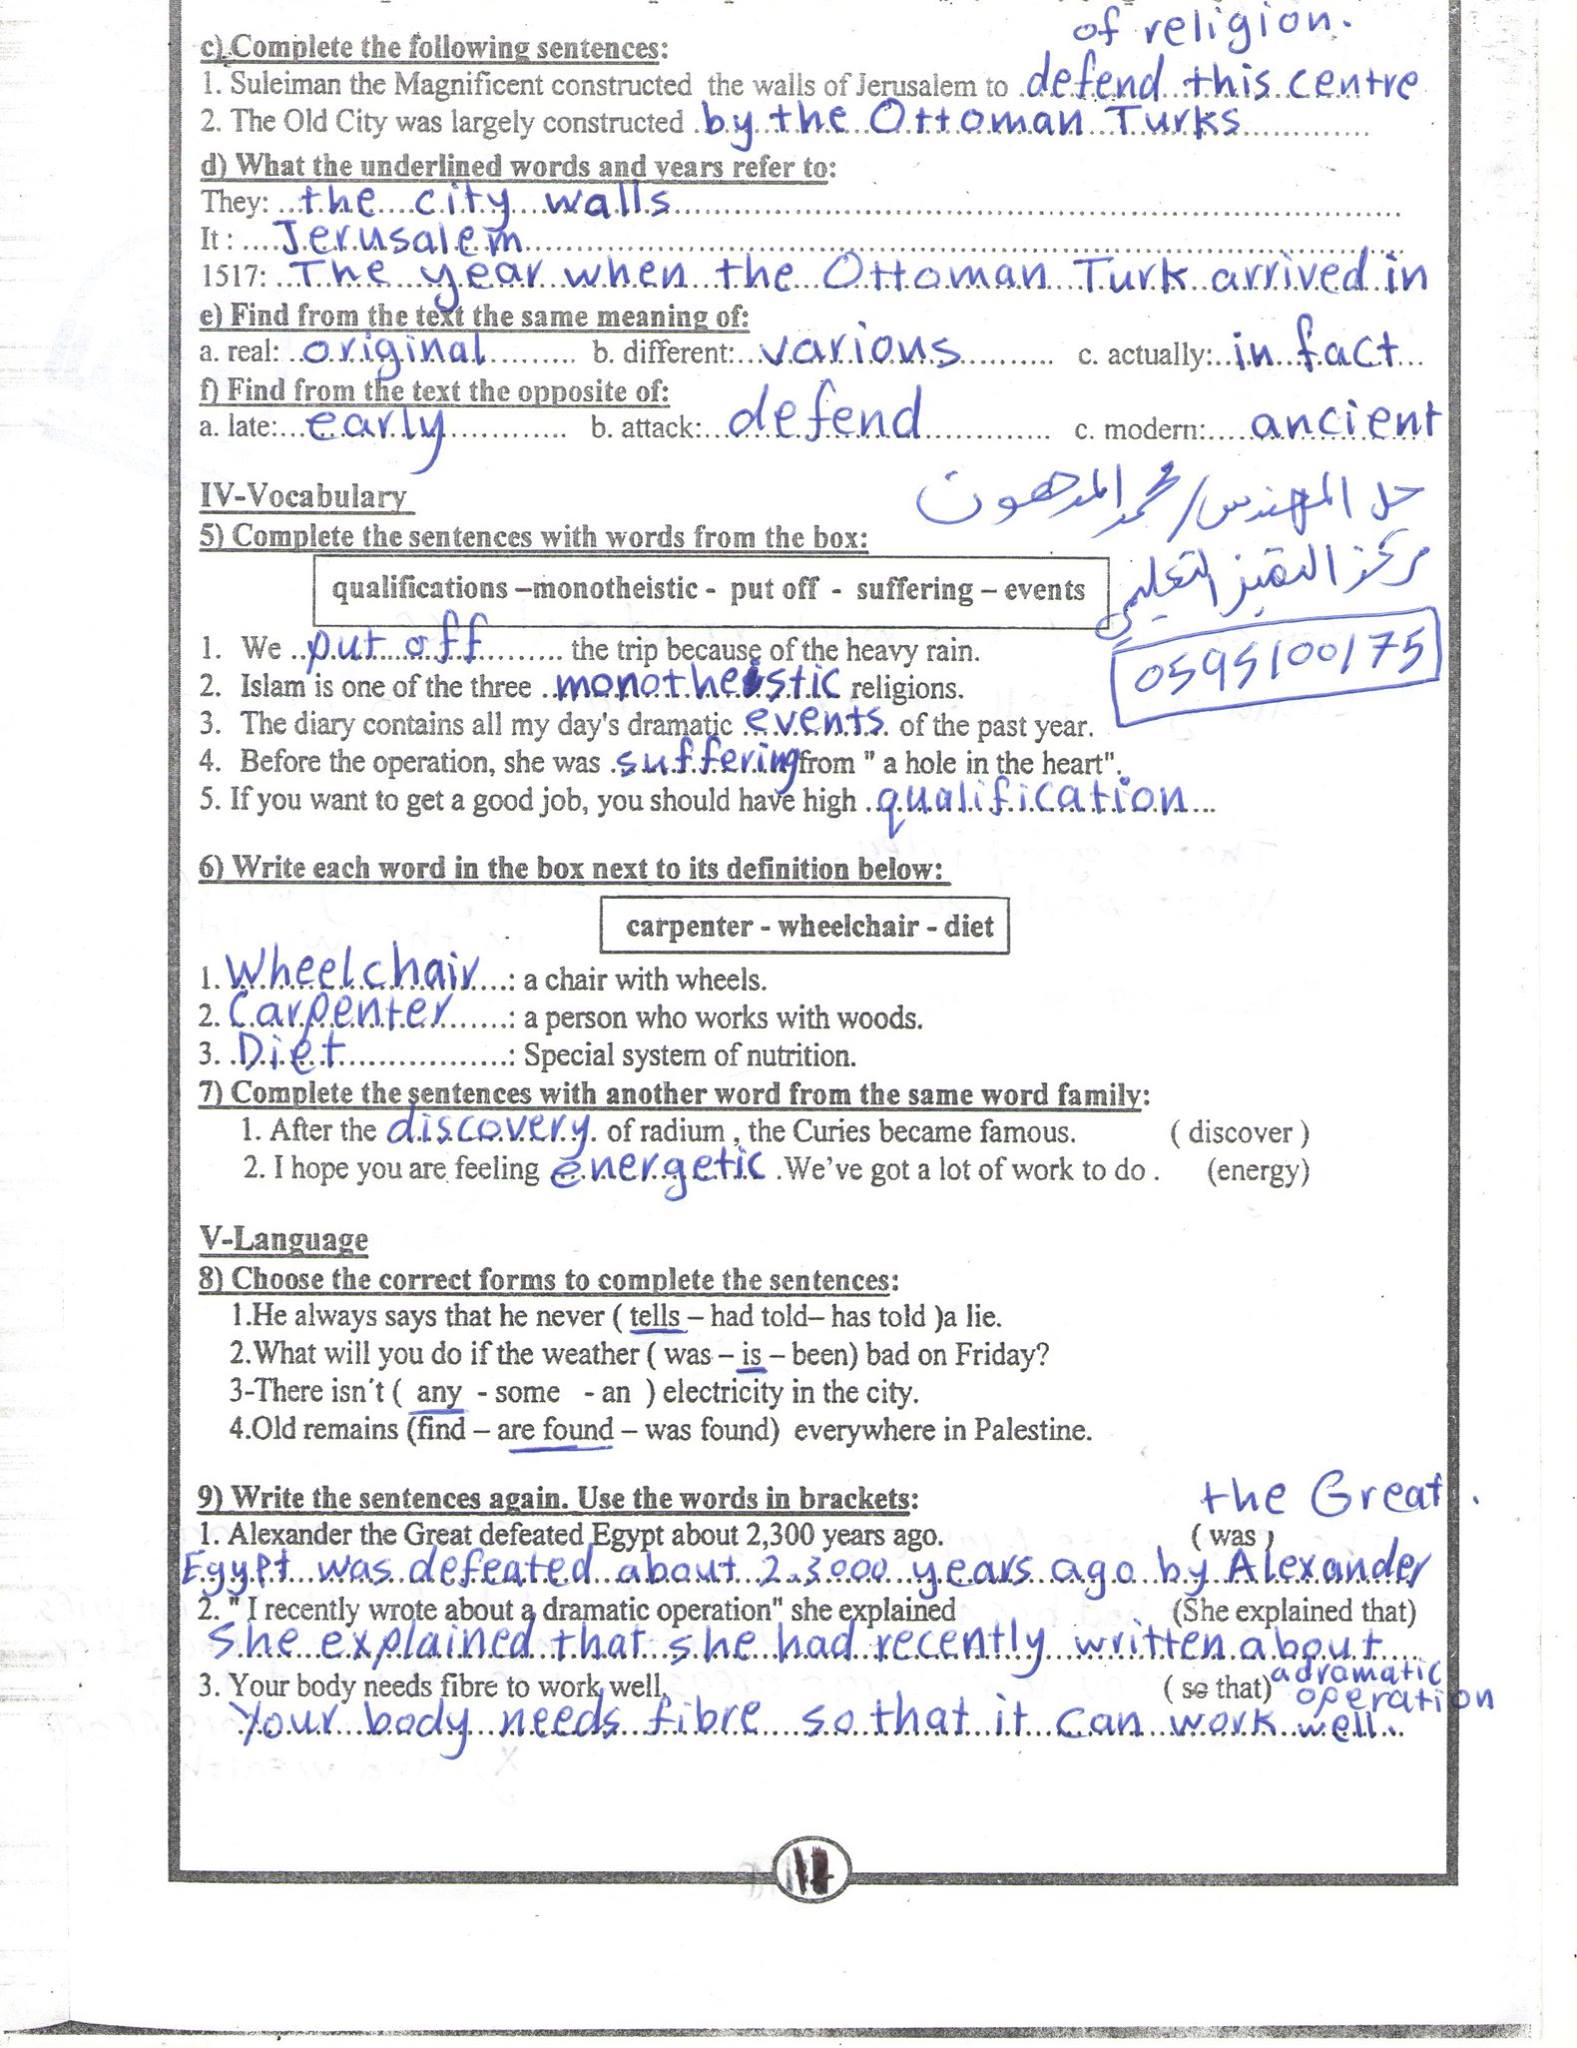 of religion.
c) Complete the following sentences:
1. Suleiman the Magnificent constructed the walls of Jerusalem to defend this centre
2. The Old City was largely constructed by the Ottoman Turks
d) What the underlined words and years refer to:
They: the city walls
It : Jerusalem
1517: The year when the Ottoman Turk arrived in
e) Find from the text the same meaning of:
a. real: original b. different: various c. actually: in fact
f) Find from the text the opposite of:
a. late: early b. attack: defend c. modern: ancient
حل المهندس/ محمد المدهون
IV-Vocabulary
5) Complete the sentences with words from the box:
مركز التميز التعليمي
qualifications –monotheistic - put off - suffering – events
1. We put off the trip because of the heavy rain.
0595100175
2. Islam is one of the three monotheistic religions.
3. The diary contains all my day's dramatic events of the past year.
4. Before the operation, she was suffering from " a hole in the heart".
5. If you want to get a good job, you should have high qualification
6) Write each word in the box next to its definition below:
carpenter - wheelchair - diet
1. Wheelchair : a chair with wheels.
2. Carpenter : a person who works with woods.
3. Diet : Special system of nutrition.
7) Complete the sentences with another word from the same word family:
1. After the discovery of radium , the Curies became famous. ( discover )
2. I hope you are feeling energetic .We've got a lot of work to do . (energy)
V-Language
8) Choose the correct forms to complete the sentences:
1.He always says that he never ( tells – had told– has told )a lie.
2.What will you do if the weather ( was – is – been) bad on Friday?
3-There isn't ( any - some - an ) electricity in the city.
4.Old remains (find – are found – was found) everywhere in Palestine.
9) Write the sentences again. Use the words in brackets:
the Great.
1. Alexander the Great defeated Egypt about 2,300 years ago. ( was )
Egypt was defeated about 2.3000 years ago by Alexander
2. " I recently wrote about a dramatic operation" she explained (She explained that)
She explained that she had recently written about
a dramatic
operation
3. Your body needs fibre to work well. ( so that)
Your body needs fibre so that it can work well.